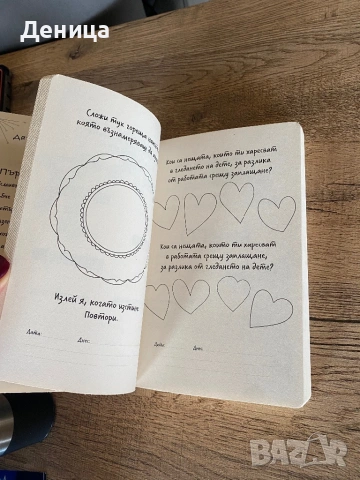 Деница
Сложи тух гореща
която възнамеряваш да
Излей я, когато изстине.
Повтори.
Дата: Днес:
Кои са нещата, които ти харесват
в гледането на дете, за разлика
от работата срещу заплащане?
Кои са нещата, които ти харесват
в работата срещу заплащане,
за разлика от гледането на дете?
Дата: Днес:
BAZAR